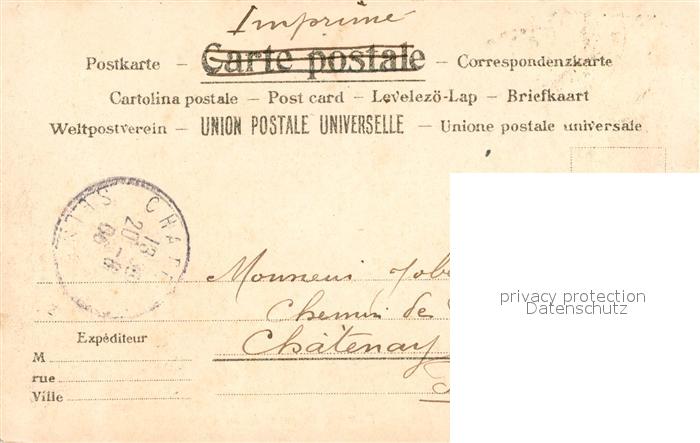 Imprimé
Postkarte – Carte postale – Correspondenzkarte
Cartolina postale – Post card – Levelezö-Lap – Briefkaart
Weltpostverein – UNION POSTALE UNIVERSELLE – Unione postale universale
CHATE
13
20-8
06
Monsieur Job
Chemin de
Châtenay
privacy protection
Datenschutz
Expéditeur
M
rue
Ville